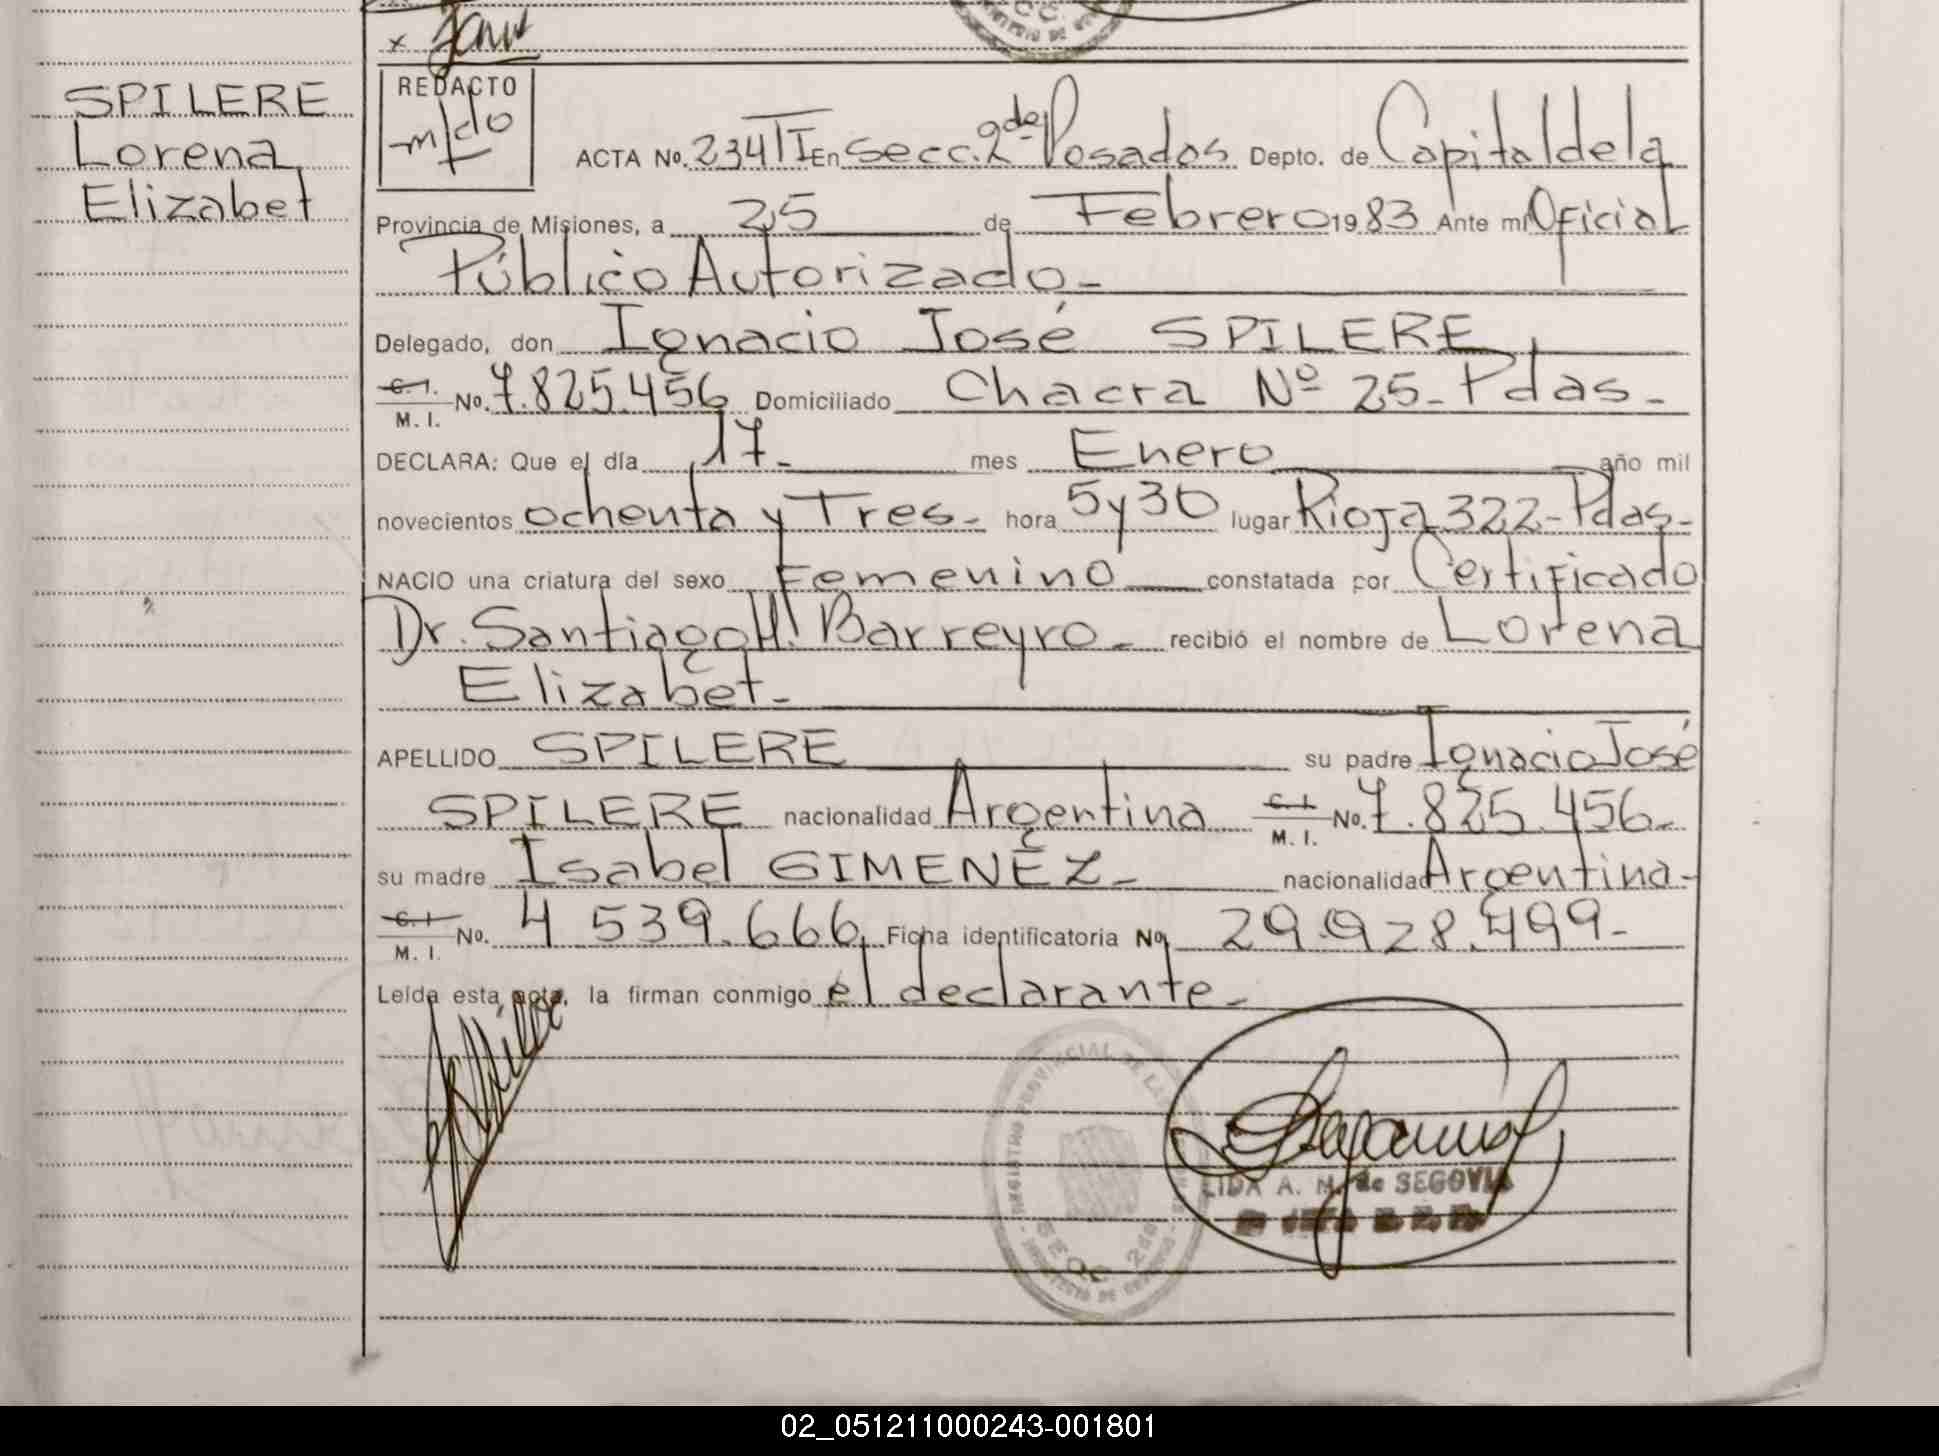 SPILERE
Lorena
Elizabet
REDACTO
ACTA No. 234 TI En Secc. 2da Posadas Depto. de Capital de la
Provincia de Misiones, a 25 de Febrero 1983 Ante mi Oficial
Público Autorizado-
Delegado, don Ignacio José SPILERE
C. I. M. I. No. 7.825.456 Domiciliado Chacra Nº 25- Pdas-
DECLARA: Que el día 17- mes Enero año mil
novecientos ochenta y Tres- hora 5 y 30 lugar Rioja 322- Pdas-
NACIO una criatura del sexo Femenino constatada por Certificado
Dr. Santiago H. Barreyro- recibió el nombre de Lorena
Elizabet-
APELLIDO SPILERE su padre Ignacio José
SPILERE nacionalidad Argentina C. I. M. I. No. 7.825.456-
su madre Isabel GIMENEZ- nacionalidad Argentina-
C. I. M. I. No. 4 539.666 Ficha identificatoria No 29.928.499-
Leída esta acta, la firman conmigo el declarante-
REGISTRO PROVINCIAL DE LAS
SECC 2da
LIDA A. M. de SEGOVIA
02_051211000243-001801